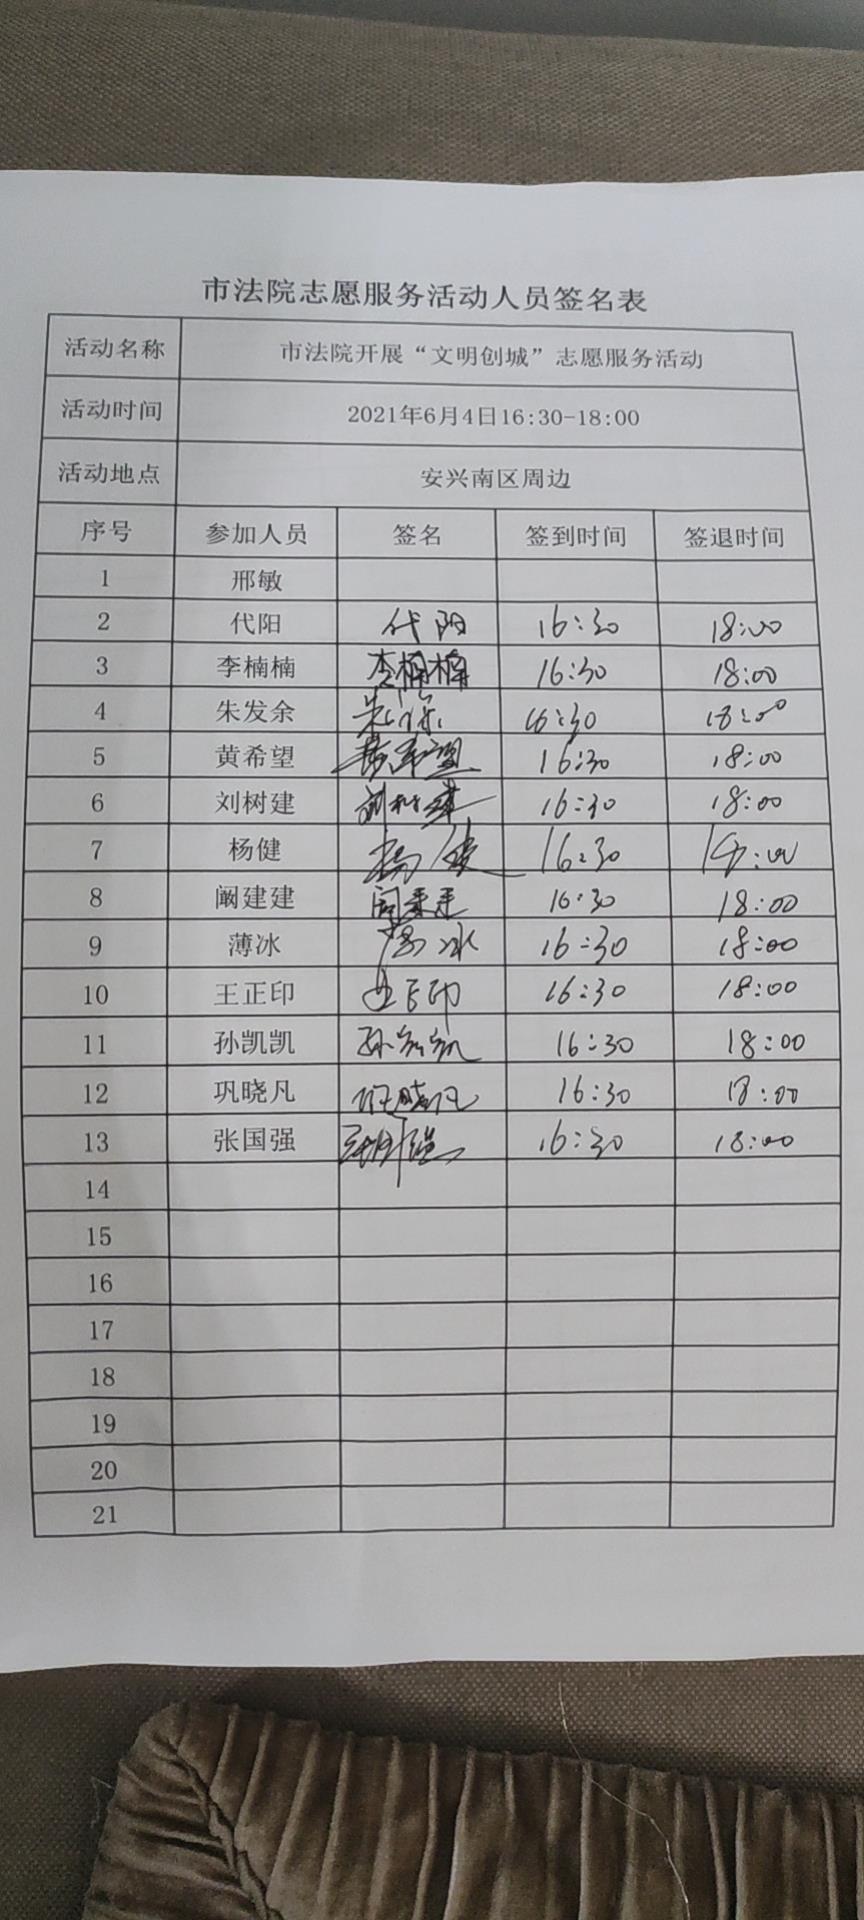 市法院志愿服务活动人员签名表
活动名称 市法院开展“文明创城”志愿服务活动
活动时间 2021年6月4日16:30-18:00
活动地点 安兴南区周边
序号 参加人员 签名 签到时间 签退时间
1 邢敏
2 代阳 代阳 16:30 18:00
3 李楠楠 李楠楠 16:30 18:00
4 朱发余 16:30 18:00
5 黄希望 黄希望 16:30 18:00
6 刘树建 刘树建 16:30 18:00
7 杨健 杨健 16:30 18:00
8 阚建建 16:30 18:00
9 薄冰 薄冰 16:30 18:00
10 王正印 王正印 16:30 18:00
11 孙凯凯 孙凯凯 16:30 18:00
12 巩晓凡 巩晓凡 16:30 18:00
13 张国强 张国强 16:30 18:00
14
15
16
17
18
19
20
21